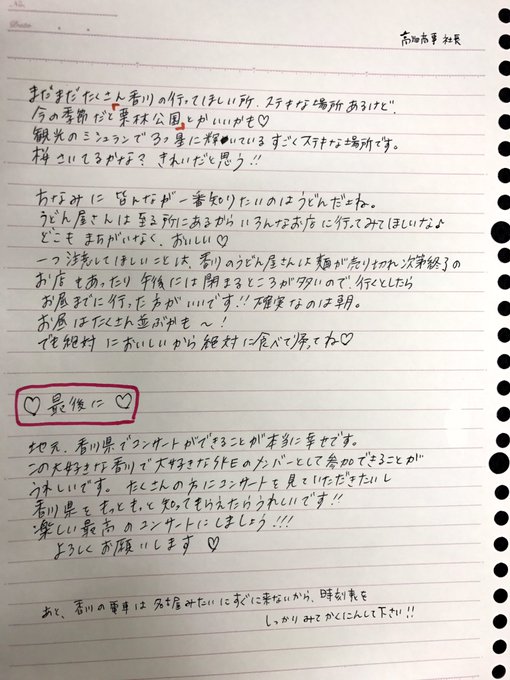 高畑商事 社長
まだまだたくさん香川の行ってほしい所、ステキな場所あるけど、
今の季節だと「栗林公園」とかいいかも♡
観光のミシュランで3つ星に輝いているすごくステキな場所です。
桜さいてるかな？きれいだと思う!!
ちなみに皆んなが一番知りたいのはうどんだよね。
うどん屋さんは至る所にあるからいろんなお店に行ってみてほしいな♪
どこもまちがいなく、おいしい♡
一つ注意してほしいことは、香川のうどん屋さんは麺が売り切れ次第終了の
お店もあったり午後には閉まるところが多いので、行くとしたら
お昼までに行った方がいいです!!確実なのは朝。
お昼はたくさん並ぶかも〜!
でも絶対においしいから絶対に食べて帰ってね♡
♡ 最後に ♡
地元、香川県でコンサートができることが本当に幸せです。
この大好きな香川で大好きなSKEのメンバーとして参加できることが
うれしいです。たくさんの方にコンサートを見ていただきたいし
香川県をもっともっと知ってもらえたらうれしいです!!
楽しい最高のコンサートにしましょう!!!
よろしくお願いします♡
あと、香川の電車は名古屋みたいにすぐに来ないから、時刻表を
しっかりみてかくにんして下さい!!